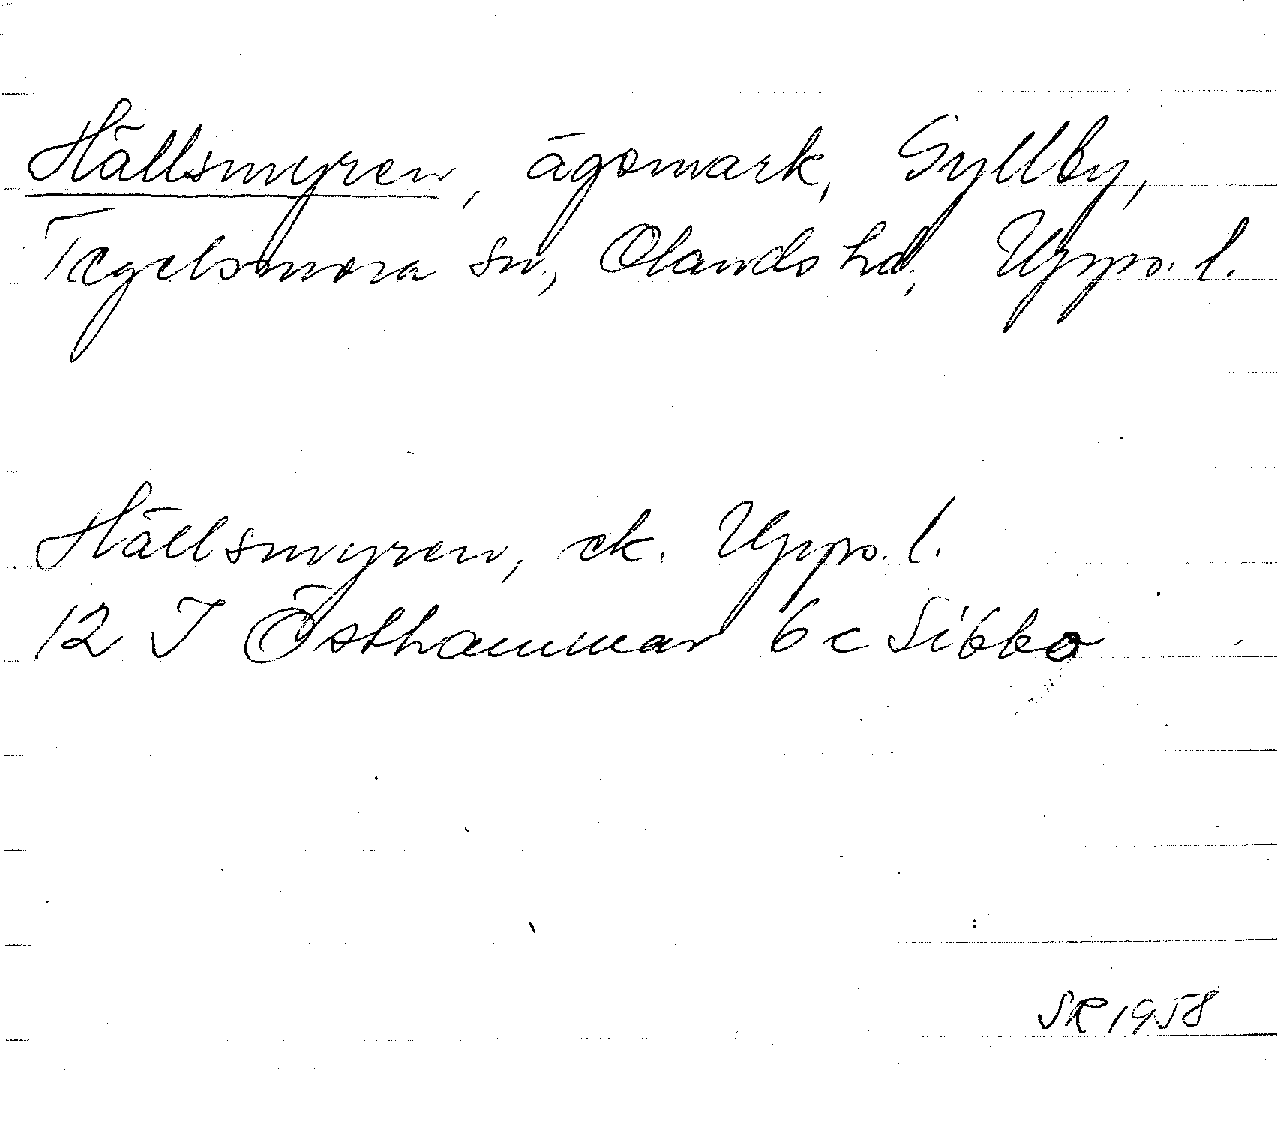 Hällsmyren, ägomark, Gyllby,
Tegelsmora sn, Olands hd, Upps. l.
Hällsmyren, ek. Upps. l.
12 I Östhammar 6 c Sibbo
SR 1958